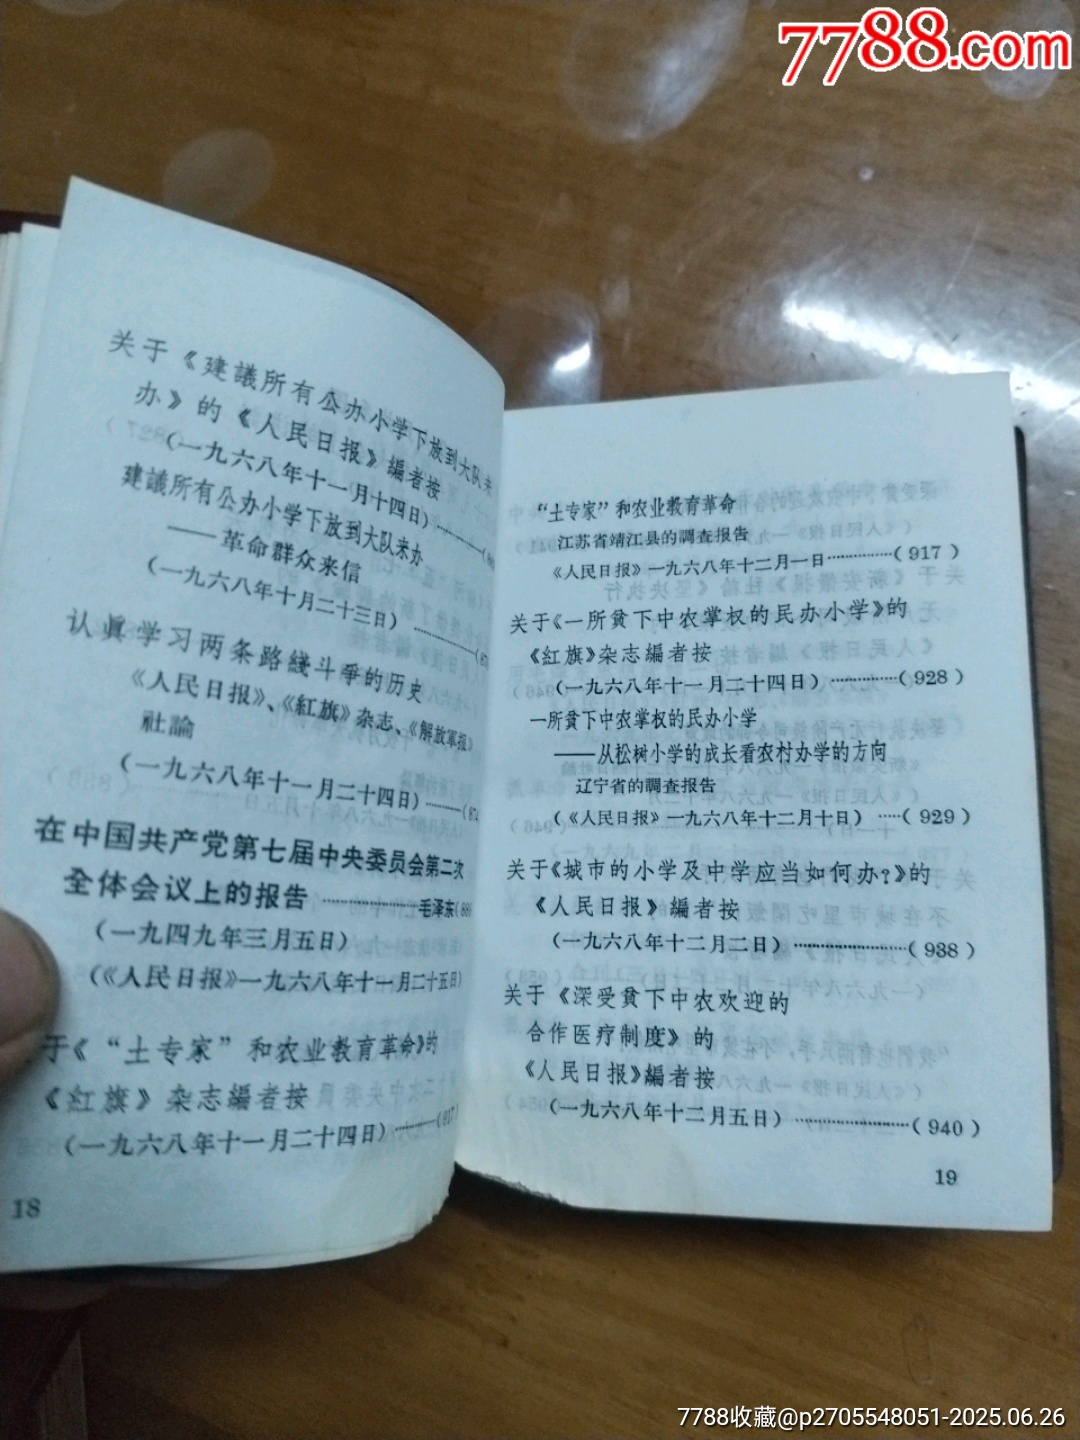 7788.com
关于《建議所有公办小学下放到大队来
办》的《人民日报》編者按
(一九六八年十一月十四日)
建議所有公办小学下放到大队来办
——革命群众来信
(一九六八年十月二十三日)
认眞学习两条路綫斗爭的历史
《人民日报》、《紅旗》杂志、《解放軍报》
社論
(一九六八年十一月二十四日)
在中国共产党第七届中央委员会第二次
全体会议上的报告 毛泽东
(一九四九年三月五日)
(《人民日报》一九六八年十一月二十五日)
于《“土专家”和农业教育革命》的
《紅旗》杂志編者按
(一九六八年十一月二十四日) (917)
18
“土专家”和农业教育革命
江苏省靖江县的調查报告
《人民日报》一九六八年十二月一日 (917)
关于《一所貧下中农掌权的民办小学》的
《紅旗》杂志編者按
(一九六八年十一月二十四日) (928)
一所貧下中农掌权的民办小学
——从松树小学的成长看农村办学的方向
辽宁省的調查报告
(《人民日报》一九六八年十二月十日) (929)
关于《城市的小学及中学应当如何办?》的
《人民日报》編者按
(一九六八年十二月二日) (938)
关于《深受貧下中农欢迎的
合作医疗制度》的
《人民日报》編者按
(一九六八年十二月五日) (940)
19
7788收藏@p2705548051-2025.06.26